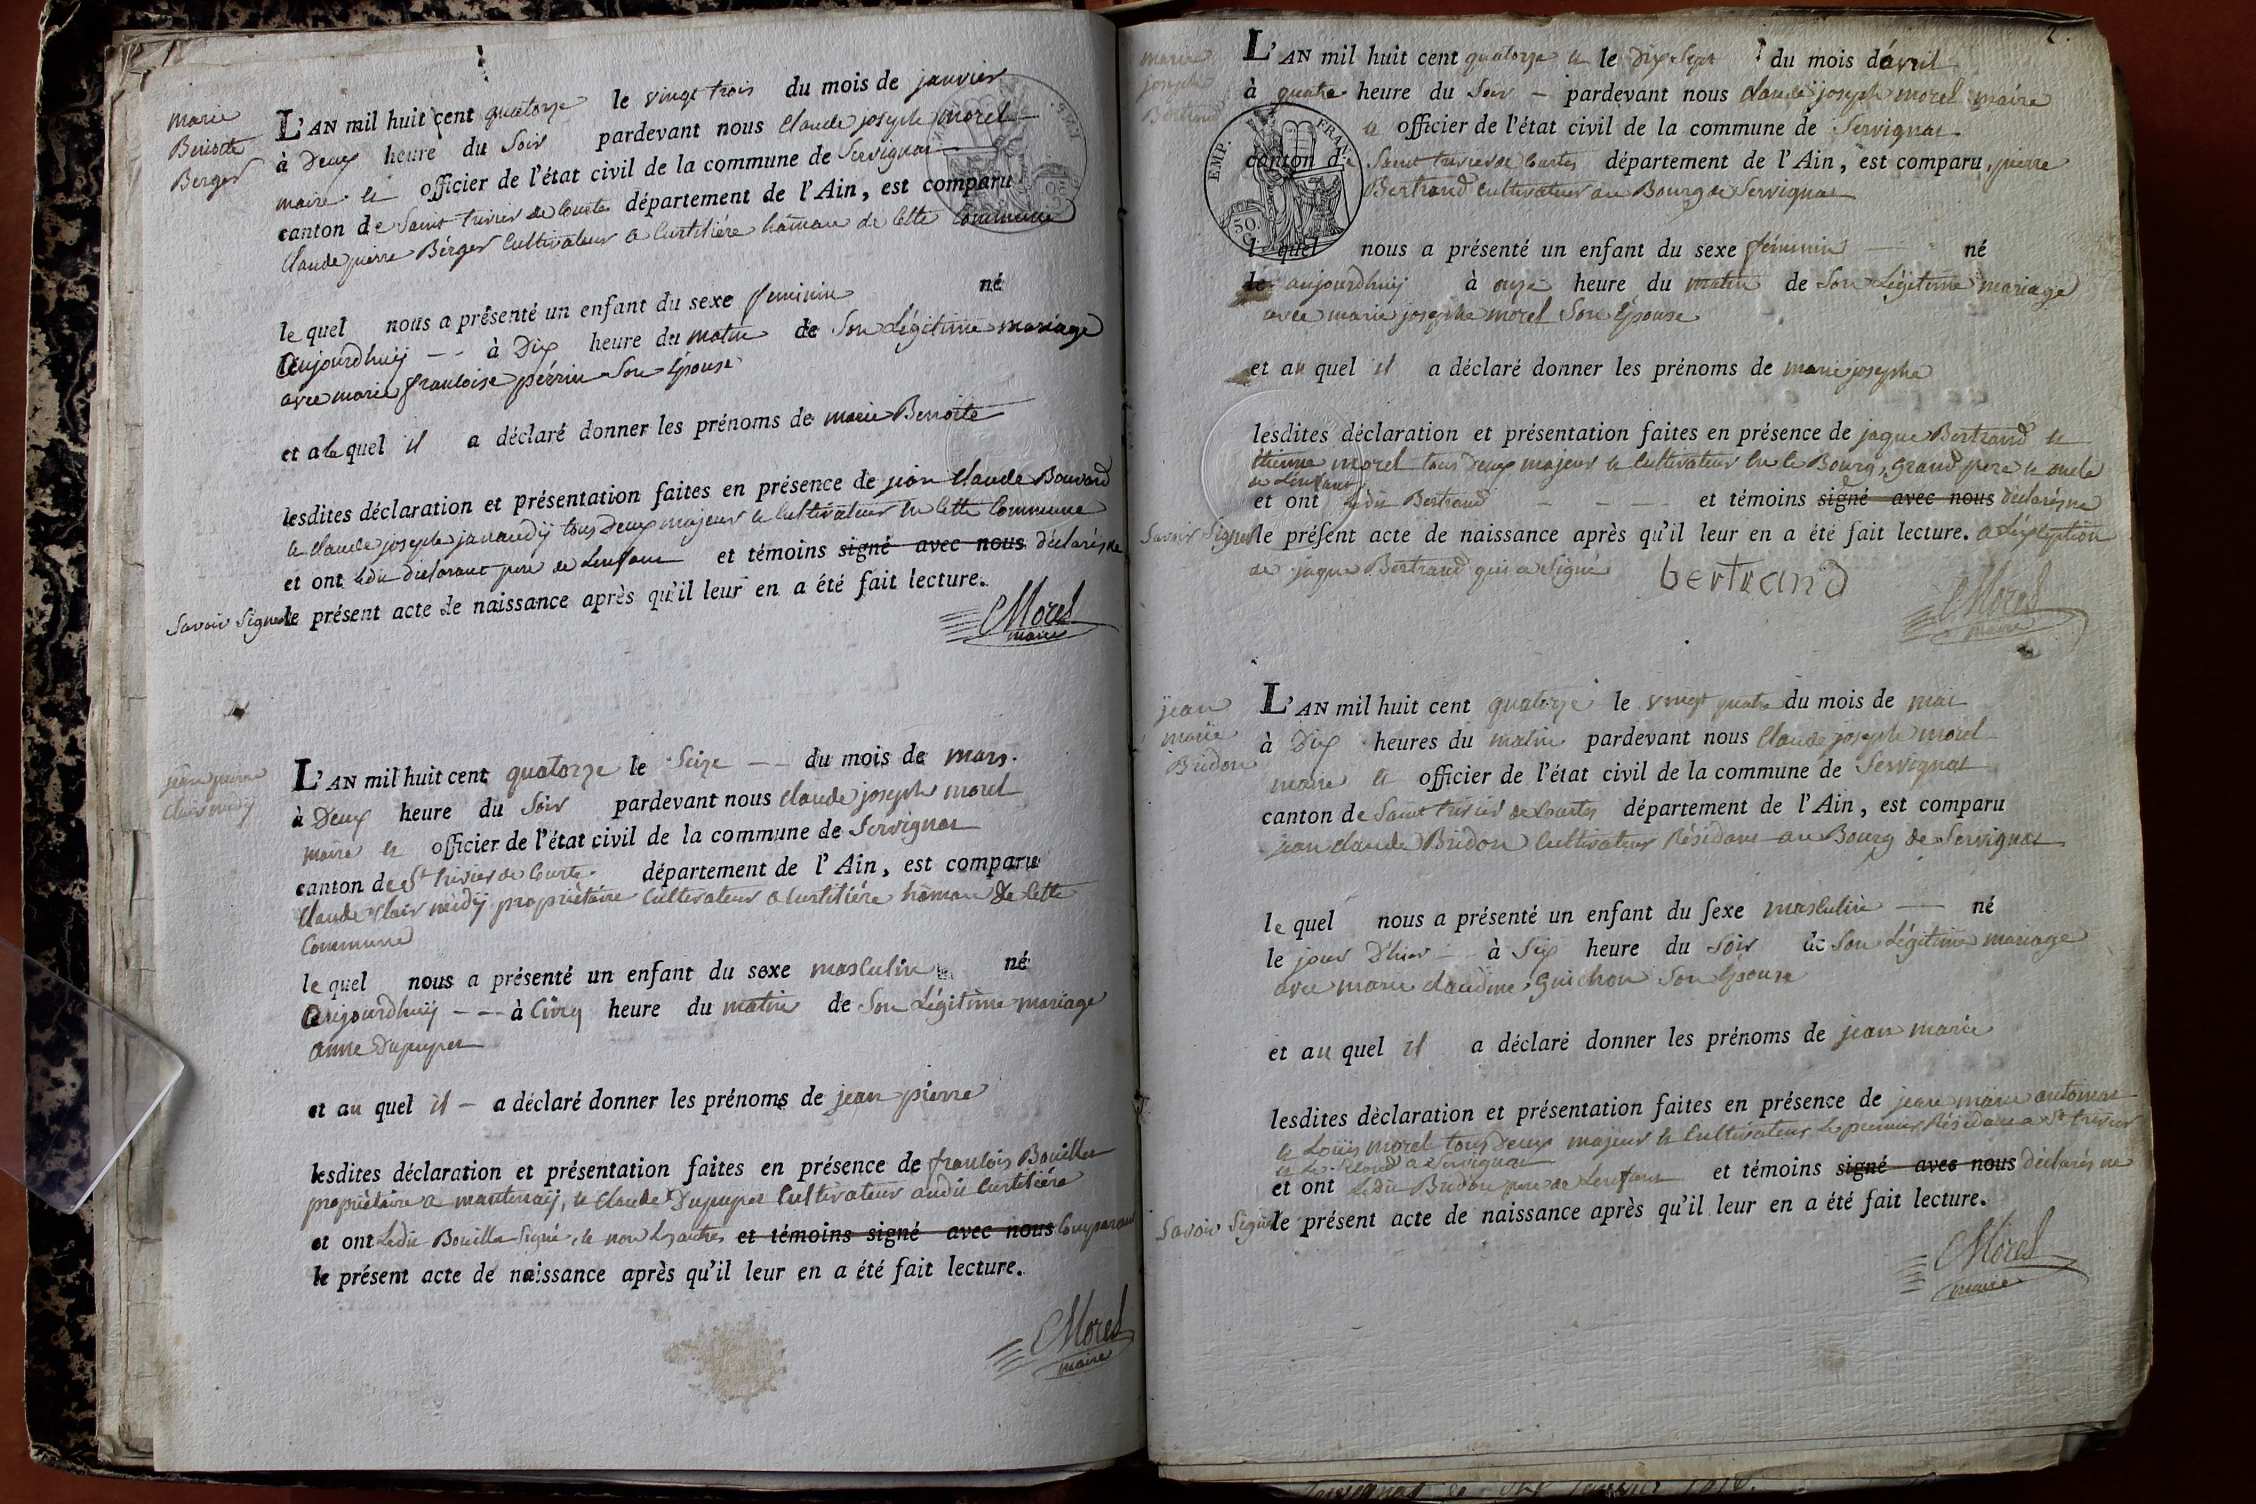 marie
Benoite
Berger
L'AN mil huit cent quatorze le vingt trois du mois de janvier
à Deux heure du Soir pardevant nous Claude joseph morel
maire et officier de l'état civil de la commune de Servignat
canton de Saint trivier de Courtes département de l'Ain, est comparu
Claude pierre Berger Cultivateur a Curtilière hameau de Cette Commune
le quel nous a présenté un enfant du sexe feminin né
aujourdhuij à Dix heure du matin de Son Légitime mariage
avec marie francoise perrin Son Epouse
et a la quel il a déclaré donner les prénoms de marie Benoite
lesdites déclaration et présentation faites en présence de jean Claude Bouvard
et Claude joseph janaudij tous Deux majeur et Cultivateur En Cette Commune
et ont ledit declarant pere de Lenfant et témoins signé avec nous déclarés ne
Savoir Signer le présent acte de naissance après qu'il leur en a été fait lecture.
Morel
maire
jean pierre
Clair midij
L'AN mil huit cent quatorze le Seize du mois de mars.
à Deux heure du Soir pardevant nous Claude joseph morel
maire et officier de l'état civil de la commune de Servignat
canton de St trivier de Courte département de l'Ain, est comparu
Claude Clair midij propriétaire Cultivateur a Curtilière hameau De Cette
Commune
le quel nous a présenté un enfant du sexe masculin né
aujourdhuij à Cinq heure du matin de Son Légitime mariage
anne Dupuper
et au quel il a déclaré donner les prénoms de jean pierre
lesdites déclaration et présentation faites en présence de francois Bouiller
propriétaire a mantenaij, et Claude Dupuper Cultivateur audit Curtilière
et ont Ledit Bouiller Signé, et non Les autres et témoins signé avec nous Comparant
le présent acte de naissance après qu'il leur en a été fait lecture.
Morel
maire
2.
marie
josephe
Bertrand
L'AN mil huit cent quatorze et le Dix Sept du mois d'avril
à quatre heure du Soir pardevant nous Claude joseph morel maire
et officier de l'état civil de la commune de Servignat
canton de Saint trivier de Courtes département de l'Ain, est comparu, pierre
Bertrand Cultivateur au Bourg de Servignat
EMP. FRAN.
50.
C.
le quel nous a présenté un enfant du sexe feminin né
aujourdhuij à onze heure du matin de Son Légitime mariage
avec marie josephe morel Son Epouse
et au quel il a déclaré donner les prénoms de marie josephe
lesdites déclaration et présentation faites en présence de jaque Bertrand et
Etienne morel tous Deux majeur et Cultivateur En le Bourg, grand pere et oncle
de Lenfant
et ont ledit Bertrand et témoins signé avec nous déclarés ne
Savoir Signer le présent acte de naissance après qu'il leur en a été fait lecture. a Lexception
de jaque Bertrand qui a Signé bertrand
Morel
maire
jean
marie
Bridon
L'AN mil huit cent quatorze le vingt quatre du mois de mai
à Dix heures du matin pardevant nous Claude joseph morel
maire et officier de l'état civil de la commune de Servignat
canton de Saint trivier de Courtes département de l'Ain, est comparu
jean claude Bridon Cultivateur Résidant au Bourg de Servignat
le quel nous a présenté un enfant du sexe masculin né
le jour D'hier à Six heure du Soir de Son Légitime mariage
avec marie claudine Guichon Son Epouse
et au quel il a déclaré donner les prénoms de jean marie
lesdites déclaration et présentation faites en présence de jean marie
et Louis morel tous Deux majeur et Cultivateur Le premier Résidant a St trivier
et Le Second a Servignat
et ont Ledit Bridon pere de Lenfant et témoins signé avec nous déclarés ne
Savoir Signer le présent acte de naissance après qu'il leur en a été fait lecture.
Morel
maire